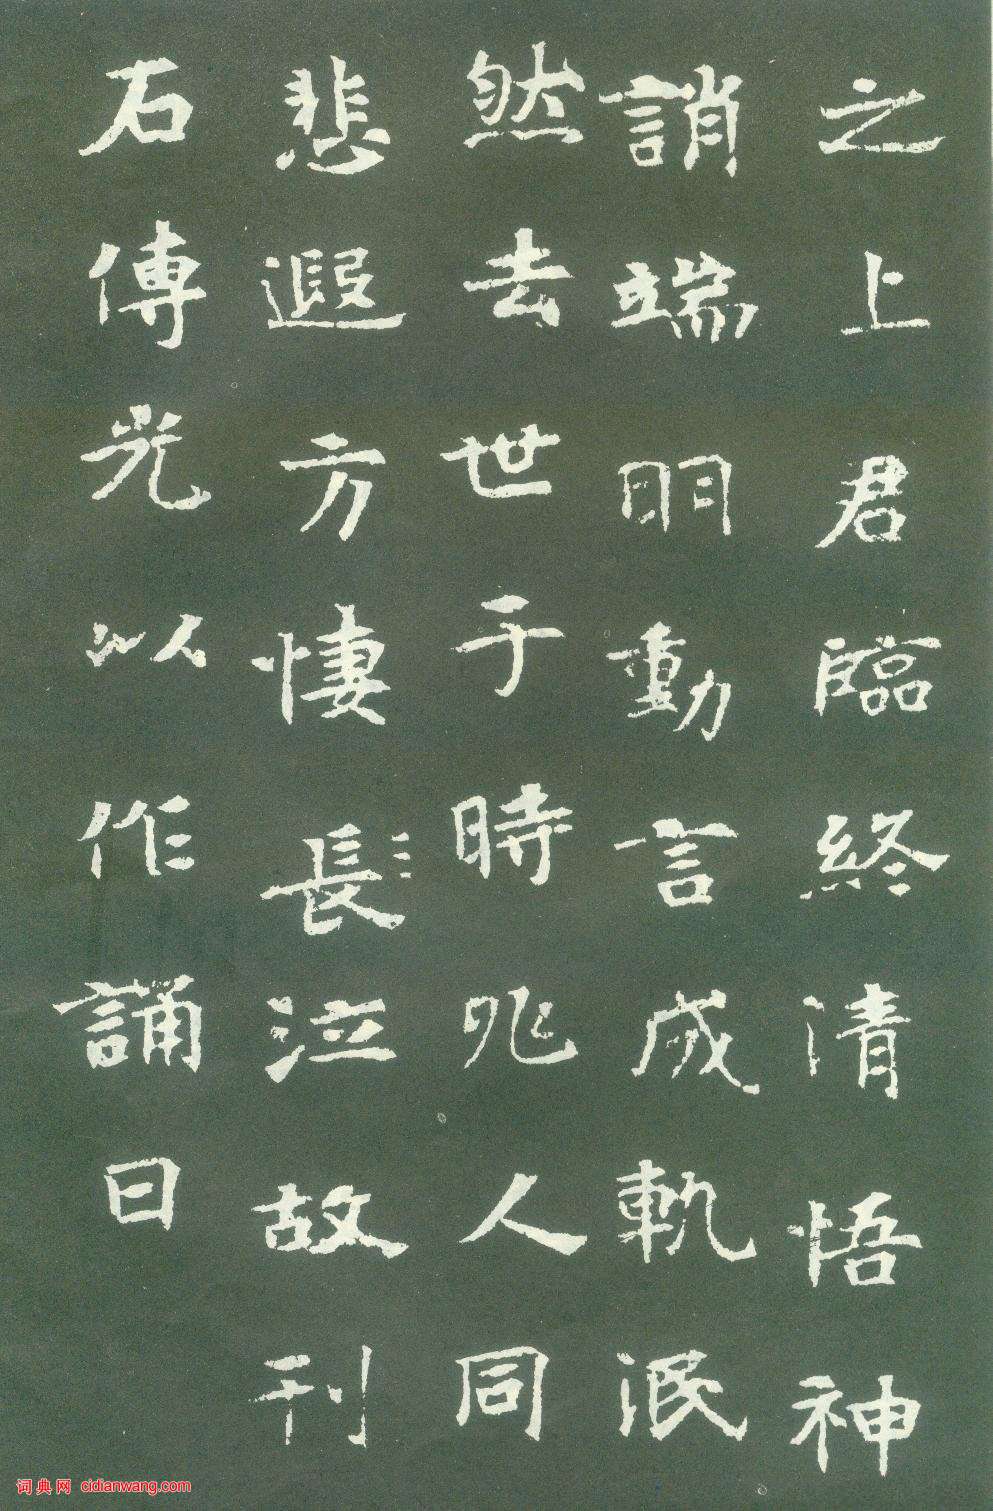 之上君臨終清悟神
誚端明動言成軌泯
然去世于時兆人同
悲遐方悽長泣故刊
石傳光以作誦曰
词典网 cidianwang.com